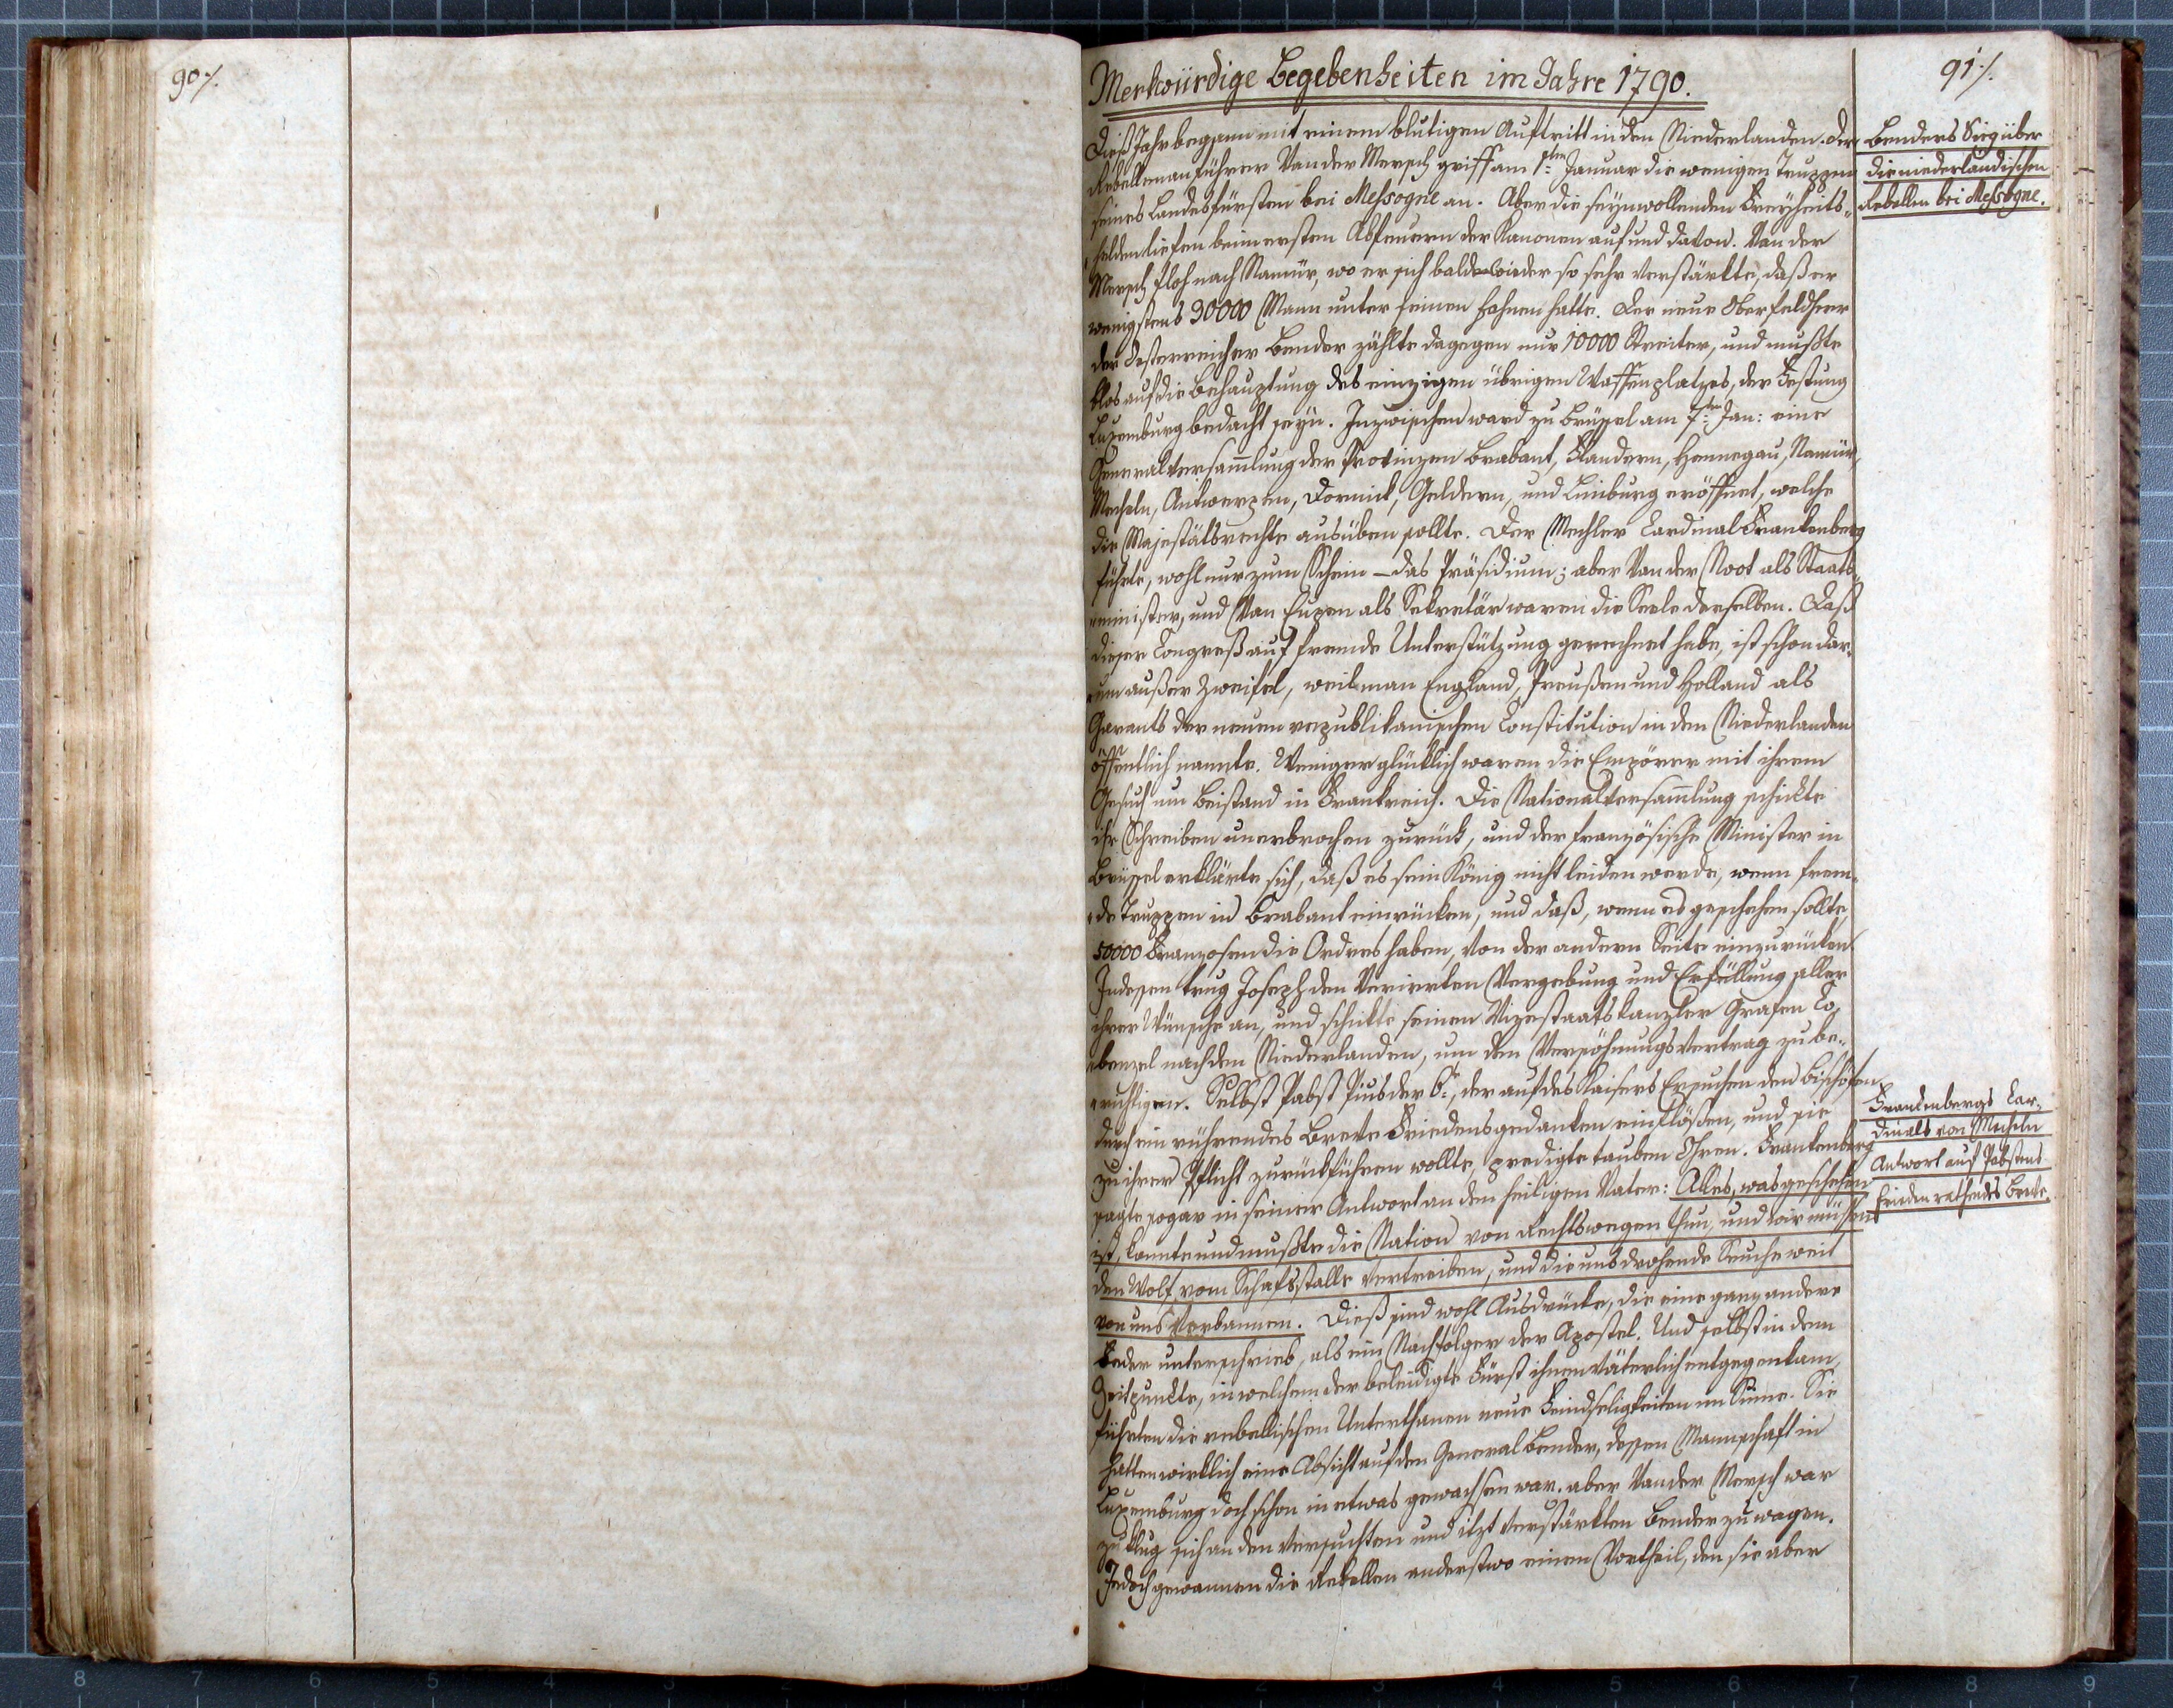 90·/.
91·/.
Merkwürdige Begebenheiten im Jahre 1790.
Dieß Jahr begann mit einem blutigen Auftritt in den Niederlanden. Der
Rebellenanführer Van der Mersch griff am 1ten Januar die wenigen Truppen
seines Landesfürsten bei Messogne an. Aber die seynwollenden Freyheits-
helden liefen beim ersten Abfeuern der Kanonen auf und davon. Van der
Mersch floh nach Namür, wo er sich bald wieder so sehr verstärkte, daß er
wenigstens 30000 Mann unter seinen Fahnen hatte. Der neue Oberfeldherr
der Oesterreicher Bender zählte dagegen nur 10000 Streiter, und mußte
blos auf die Behauptung des einzigen übrigen Waffenplatzes, der Festung
Luxemburg bedacht seyn. Inzwischen ward zu Brüssel am 7ten Jan: eine
Generalversammlung der Provinzen Brabant, Flandern, Hennegau, Namür,
Mecheln, Antwerpen, Dornick, Geldern, und Limburg eröffnet, welche
die Majestätsrechte ausüben sollte. Der Mechler Cardinal Frankenberg
führte, wohl nur zum Schein – das Präsidium; aber Van der Noot als Staats-
minister, und Van Eupen als Sekretär waren die Seele derselben. Daß
dieser Congreß auf fremde Unterstützung gerechnet habe, ist schon dar-
um außer Zweifel, weil man England, Preußen und Holland als
Garants der neuen republikanischen Constitution in den Niederlanden
öffentlich nannte. Weniger glücklich waren die Empörer mit ihrem
Gesuch um Beistand in Frankreich. Die Nationalversammlung schickte
ihr Schreiben unerbrochen zurück, und der französische Minister in
Brüssel erklärte sich, daß es sein König nicht leiden werde, wenn frem-
de Truppen in Brabant einrücken, und daß, wenn es geschehen sollte,
50000 Franzosen die Ordres haben, von der andern Seite einzurücken.
Indessen trug Joseph den Verirrten Vergebung und Erfüllung aller
ihrer Wünsche an, und schickte seinen Vizestaatskanzler Grafen Co-
benzel nach den Niederlanden, um den Versöhnungsvertrag zu be-
richtigen. Selbst Pabst Pius der 6te, der auf des Kaisers Ersuchen den Bischöfen
durch ein rührendes Breve Friedensgedanken einflößen, und sie
zu ihrer Pflicht zurückführen wollte, predigte tauben Ohren. Frankenberg
sagte sogar in seiner Antwort an den heiligen Vater: Alles, was geschehen
ist, konnte und mußte die Nation von Rechtswegen thun, und wir müssen
den Wolf vom Schafsstalle vertreiben, und die uns drohende Seuche weit
von uns verbannen. Dieß sind wohl Ausdrücke, die eine ganz andere
Feder unterschrieb, als ein Nachfolger der Apostel. Und selbst in dem
Zeitpunkte, in welchem der beleidigte Fürst ihnen väterlich entgegenkam,
führten die rebellischen Unterthanen neue Feindseligkeiten im Sinne. Sie
hatten wirklich eine Absicht auf den General Bender, dessen Mannschaft in
Luxemburg doch schon in etwas gewachsen war. aber Van der Mersch war
zu klug sich an den versuchten und itzt verstärkten Bender zu wagen.
Jedoch gewannen die Rebellen anderstwo einen Vortheil, den sie aber
Benders Sieg über
die niederländischen
Rebellen bei Messogne.
Frankenbergs Car-
dinals von Mecheln
Antwort auf Pabstens
frieden rathendes Breve.